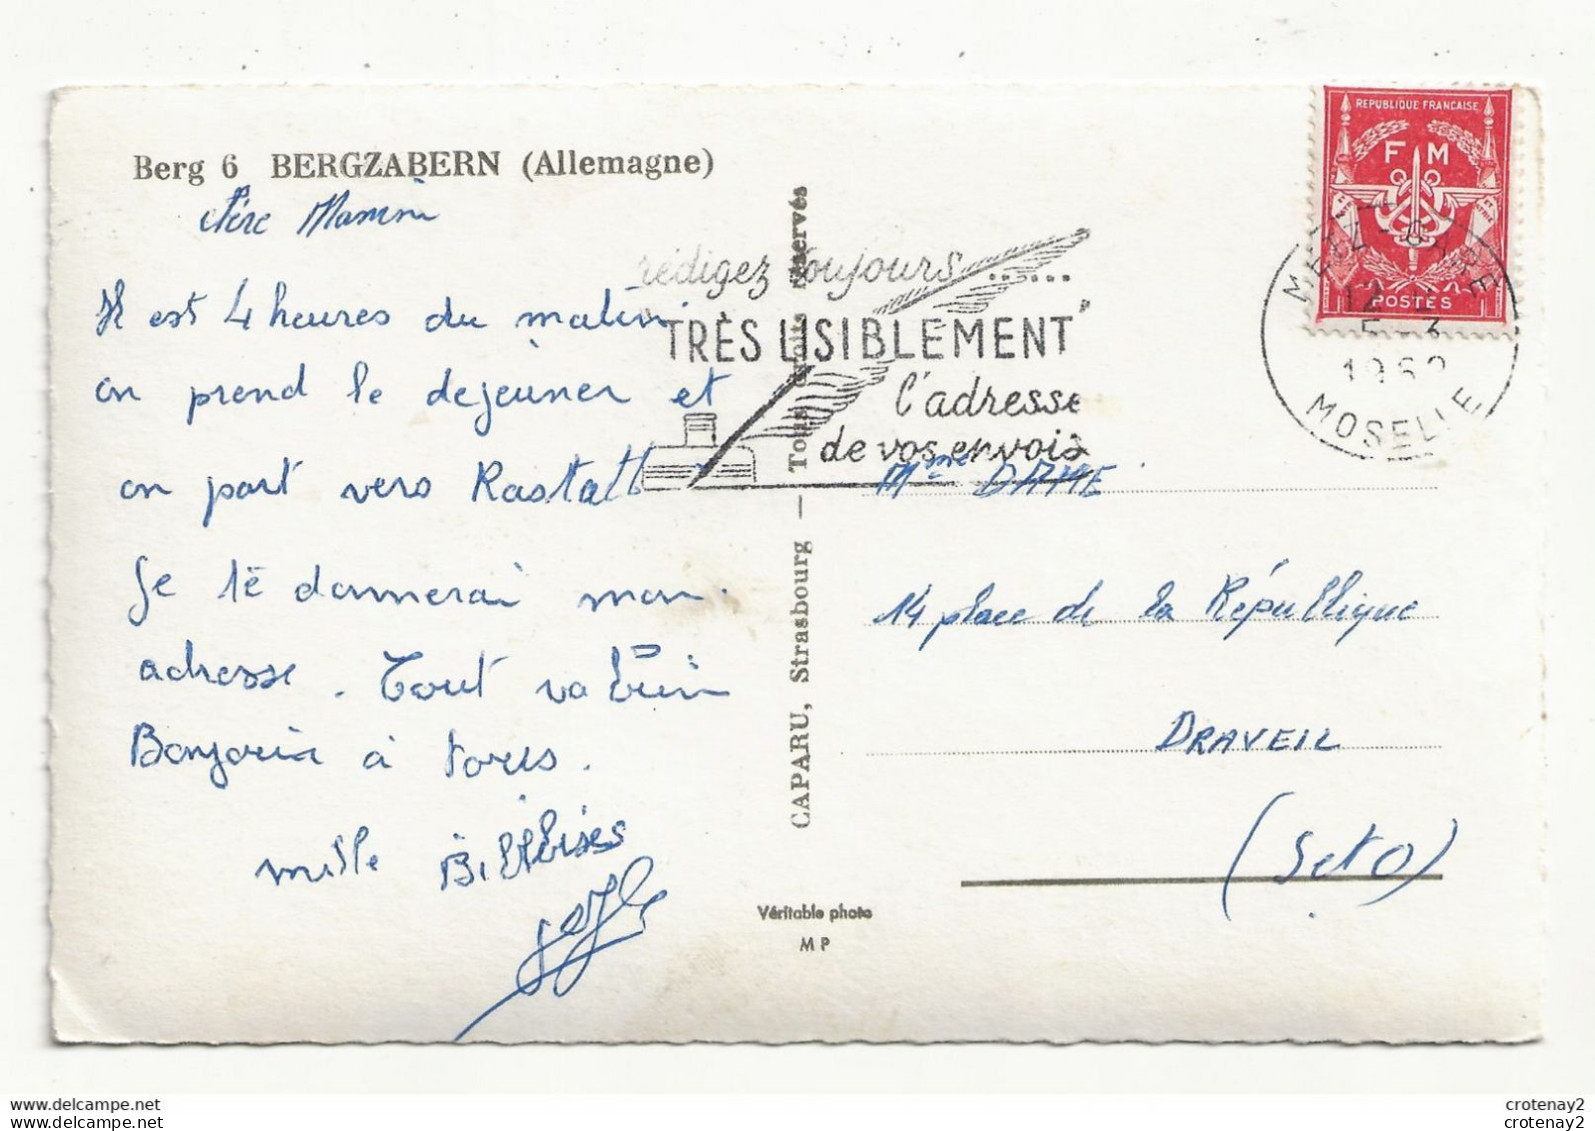 Berg 6 BERGZABERN (Allemagne)
Mamin
Il est 4 heures du matin
on prend le dejeuner et
on part vers Rastatt
Je te donnerai mon
adresse. Tout va bien
Bonjour à tous.
mille
rédigez toujours......
TRÈS LISIBLEMENT
l'adresse
de vos envois
CAPARU, Strasbourg — Tous droits réservés
Véritable photo
M P
REPUBLIQUE FRANCAISE
F M
POSTES
METZ-GARE
12
196
MOSELLE
Mme DAME
14 place de la République
DRAVEIL
(SetO)
delcampe.net
crotenay2
delcampe.net
crotenay2